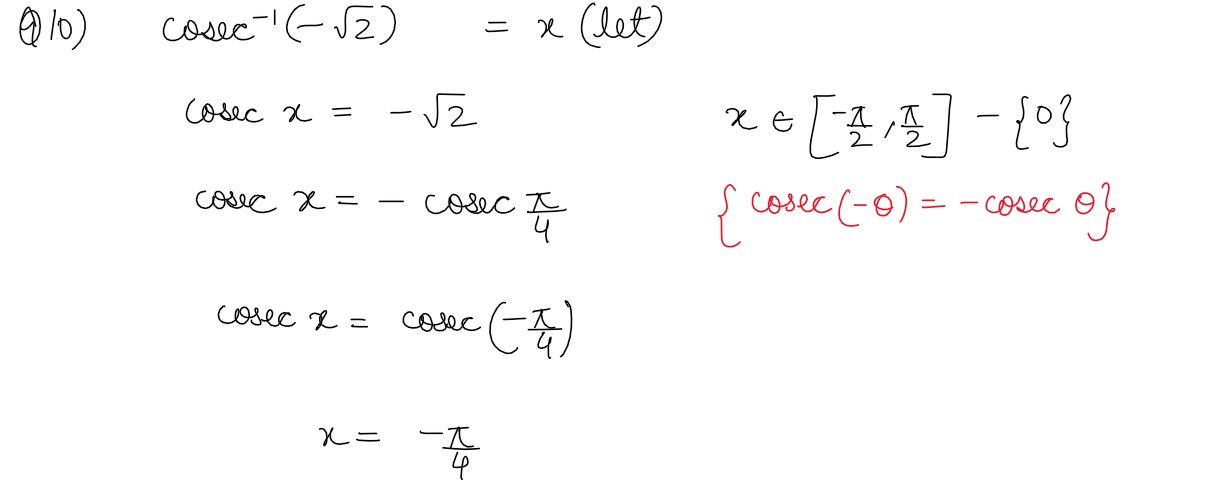 Q10) cosec⁻¹(-√2) = x (let)
cosec x = -√2 x ∈ [-π/2, π/2] - {0}
cosec x = - cosec π/4 {cosec(-θ) = -cosec θ}
cosec x = cosec(-π/4)
x = -π/4